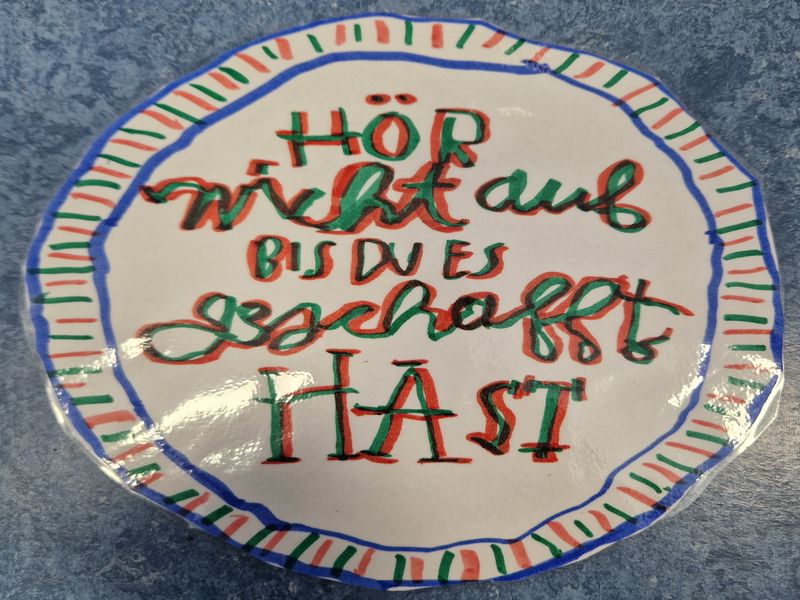 HÖR
nicht auf
BIS DU ES
geschafft
HAST